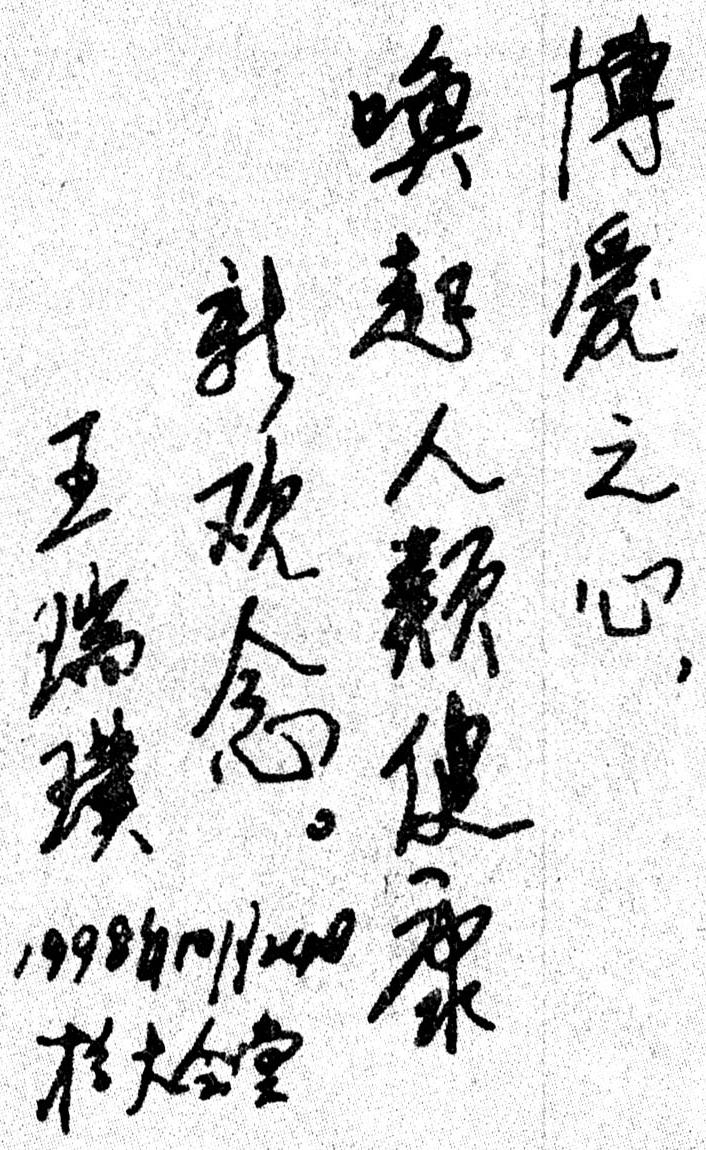 博爱之心，
唤起人類健康
新观念。
王瑞璞
1998年10月24日
於大会堂